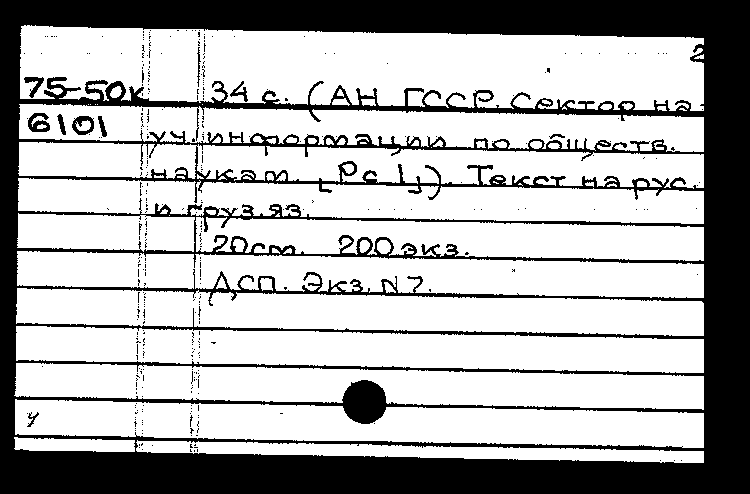 2
75-50к 34 с. (АН ГССР. Сектор на-
6101 уч. информации по обществ.
наукам. [Рс 1]). Текст на рус.
и груз.яз.
20 cm. 200 экз.
ДСП. Экз. N 7.
ч